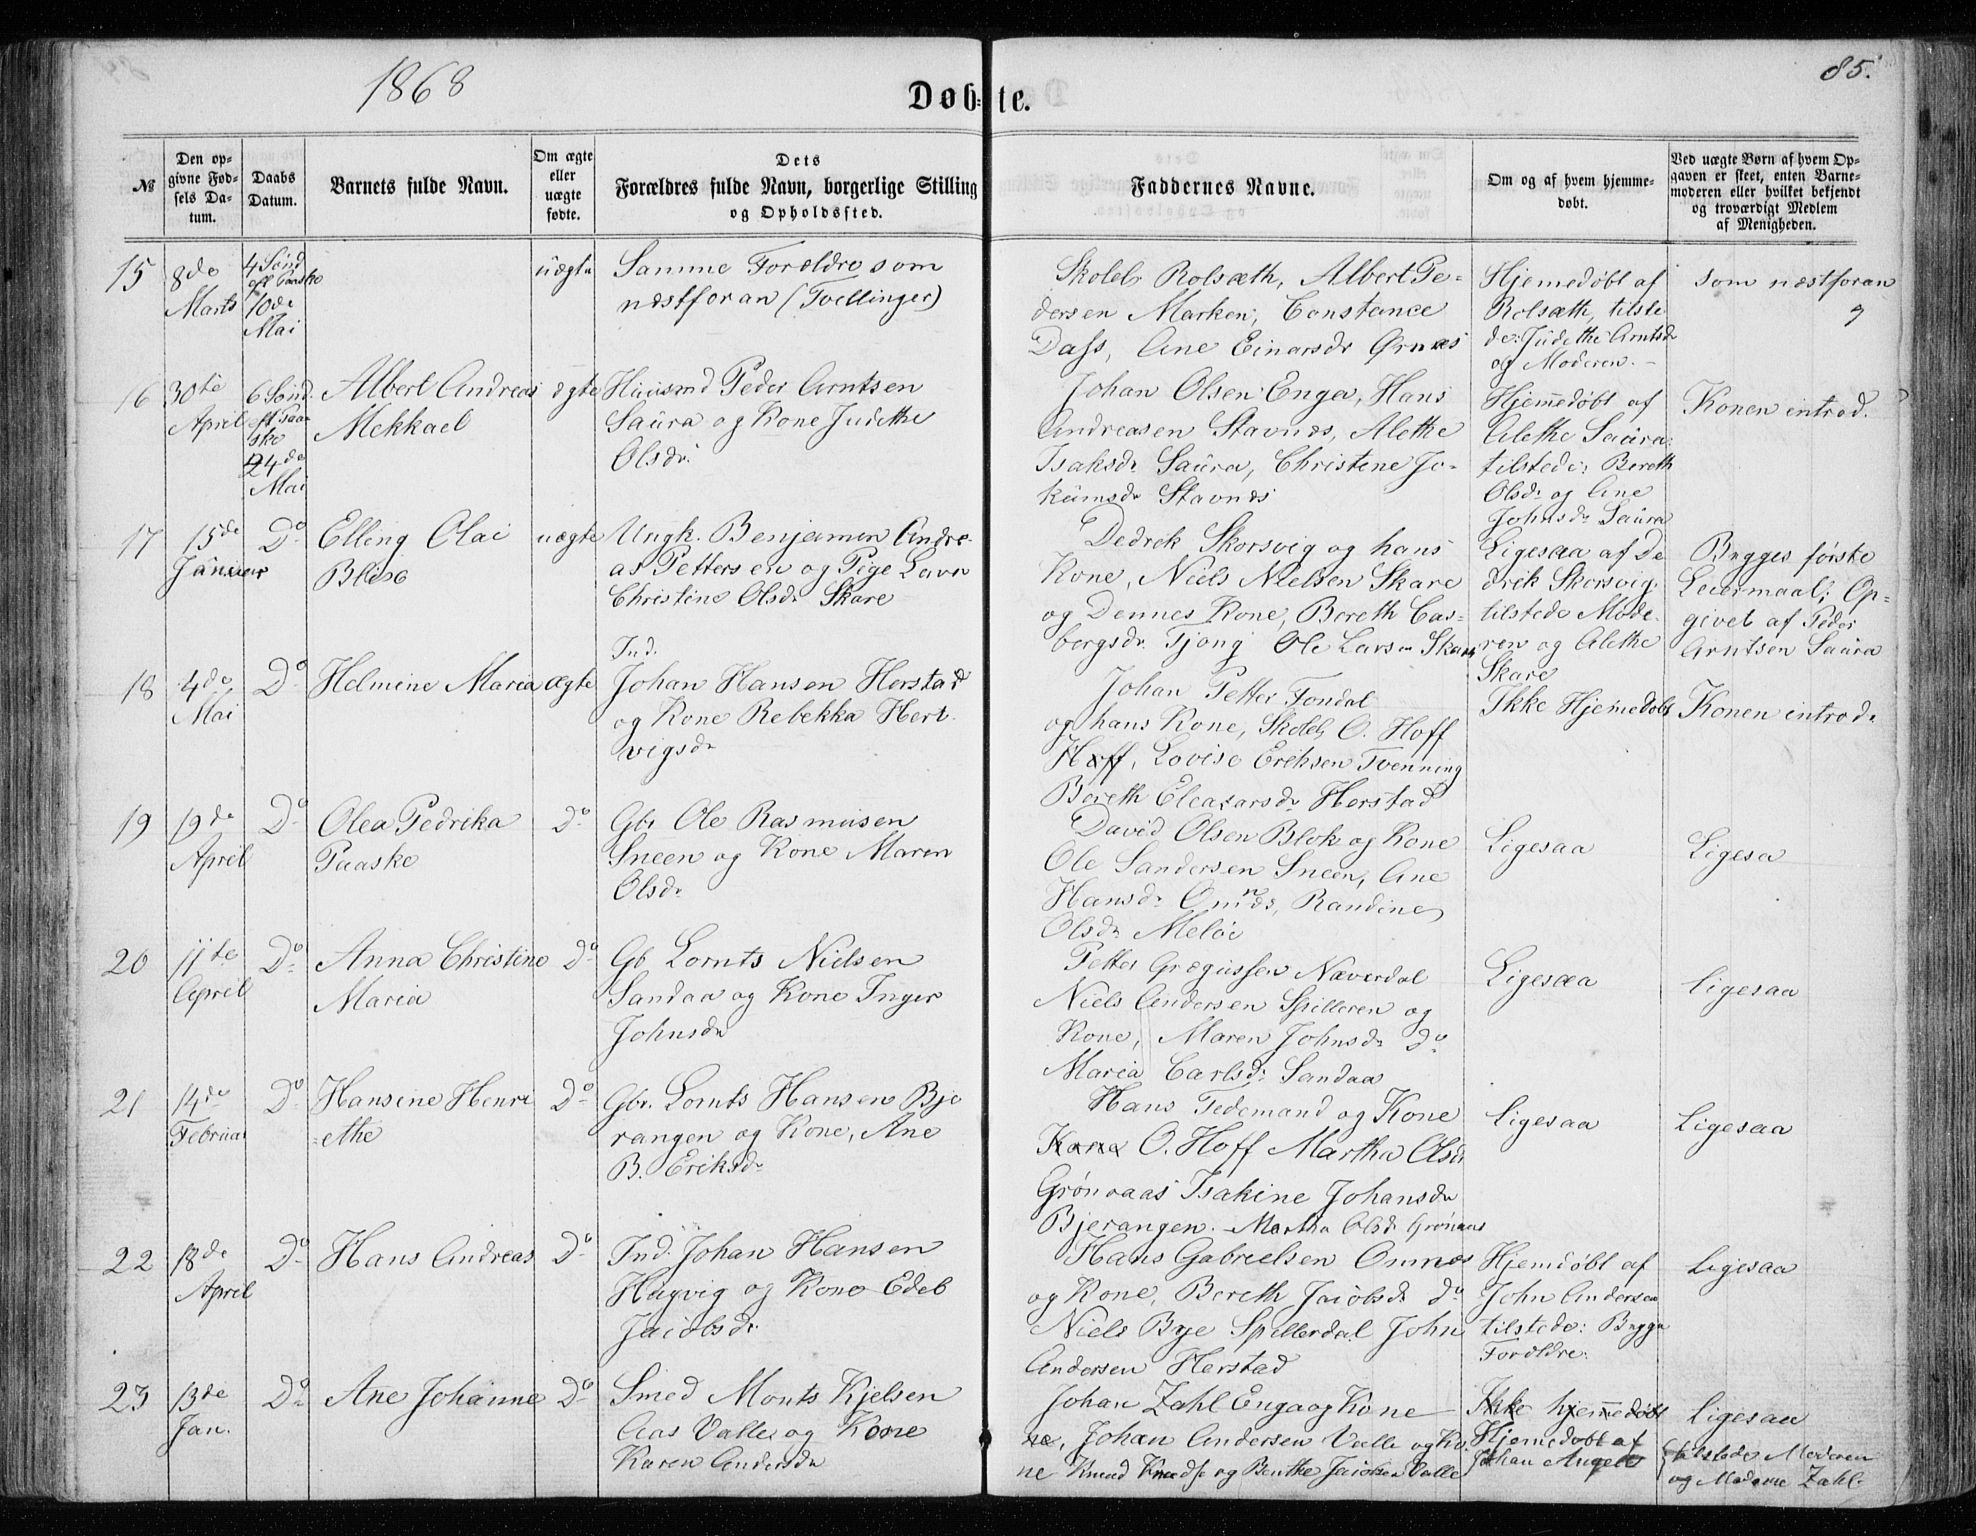 1868
85.
Døb-te.
№
Den op-
givne Fød-
sels Da-
tum.
Daabs
Datum.
Barnets fulde Navn.
Om ægte
eller
uægte
fødte.
Dets
Forældres fulde Navn, borgerlige Stilling
og Opholdssted.
Faddernes Navne.
Om og af hvem hjemme-
døbt.
Ved uægte Børn af hvem Op-
gaven er skeet, enten Barne-
moderen eller hvilket bekjendt
og troværdigt Medlem
af Menigheden.
15
8de
Marts
4 Sønd
eft Paaske
10de
Mai
uægte
Samme Forældre som
næstforan (Tvillinger)
Skoleb. Rolsæth, Albert Pe-
dersen Marken, Constance
Dass, Ane Einarsdr Ørnæs
Hjemmedøbt af
Rolsæth, tilste
de: Judithe Arntsdr
og Moderen. –
som næstforan
16
30te
April
6 Sønd.
eft Paa
ske
24de
Mai
Albert Andreas
Mekkael
ægte
Huusmd Peder Arntsen
Saura og Kone Judithe
Olsdr
Johan Olsen Enga, Hans
Andreasen Stavnes, Alethe
Isaksdr Saura, Christine Jo-
kumsdr Stavnes
Hjemmedøbt af
Alethe Saura
tilstede: Bereth
Olsdr og Ane
Johnsdr Saura
Konen introd.
17
15de
Januar
Do
Elling Olai
Blix
uægte
Ungk. Benjamin Andre-
as Pettersen og Pige Lavn
Christine Olsdr Skare
Dedrek Skorsvig og hans
Kone, Niels Nielsen Skare
og Dennes Kone, Bereth Cas-
bergsdr Tjong Ole Larsen Skare
Ligesaa af De
drik Skorsvig,
tilstede Mode-
ren og Alethe
Skare
Begges første
Leiermaal; Op-
givet af Peder
Arntsen Saura
18
4de
Mai
Do
Helmine Maria
ægte
Ind.
Johan Hansen Herstad
og Kone Rebekka Hert-
vigsdr
Johan Petter Fondal
og hans Kone, Skoleb O. Hoff
Hoff, Lovise Eriksen Tvenning
Bereth Eleasarsdr Herstad
Ikke Hjemmedøbt
Konen introd.
19
19de
April
Do
Olea Pedrika
Paaske
Do
Gbr Ole Rasmusen
Sneen og Kone Maren
Olsdr
David Olsen Blok og Kone
Ole Sandersen Sneen, Ane
Hansdr Omnæs, Randine
Olsdr Meløe
Ligesaa
Ligesa
20
11te
April
Do
Anna Christine
Maria
Do
Gb Lornts Nielsen
Sandaa og Kone Inger
Johnsdr
Petter Gregussen Næverdal
Niels Andersen Spilleren og
Kone, Maren Johnsdr Do
Maria Carlsdr Sandaa
Ligesaa
Ligesaa
21
14de
Februar
Do
Hansine Henri
=ethe
Do
Gbr. Lornts Hansen Bje
rangen og Kone, Ane
B. Eriksdr
Hans Tedemand og Kone
Kone O. Hoff Martha Olsdr
Grønaas Isakine Johansdr
Bjerangen. Martha Olsdr Grønaas
Ligesaa
Ligesaa
22
18de
April
Do
Hans Andreas
Do
Ind. Johan Hansen
Høgvig og Kone Edel
Jacobsdr
Hans Gabrielsen Omnæs
og Kone, Bereth Jacobsdr do
Niels Bye Spillerdal John
Andersen Herstad
Hjemdøbt af
John Andersen
tilstede: Begge
Forældre.
Ligesaa
23
13de
Jan.
Do
Ane Johanne
Do
Smed Monts Kjelsen
Aas Valle og Kone
Karen Andersdr
Johan Zahl Enga og Kone
ne, Johan Andersen Valle og Ko
ne Knud Knudss og Benthe Jacobsen Valle
Ikke hjemmedøbt
Hjemmedøbt af
Johan Angell
Ligesaa
tilstede Moderen
og Madame Zahl.